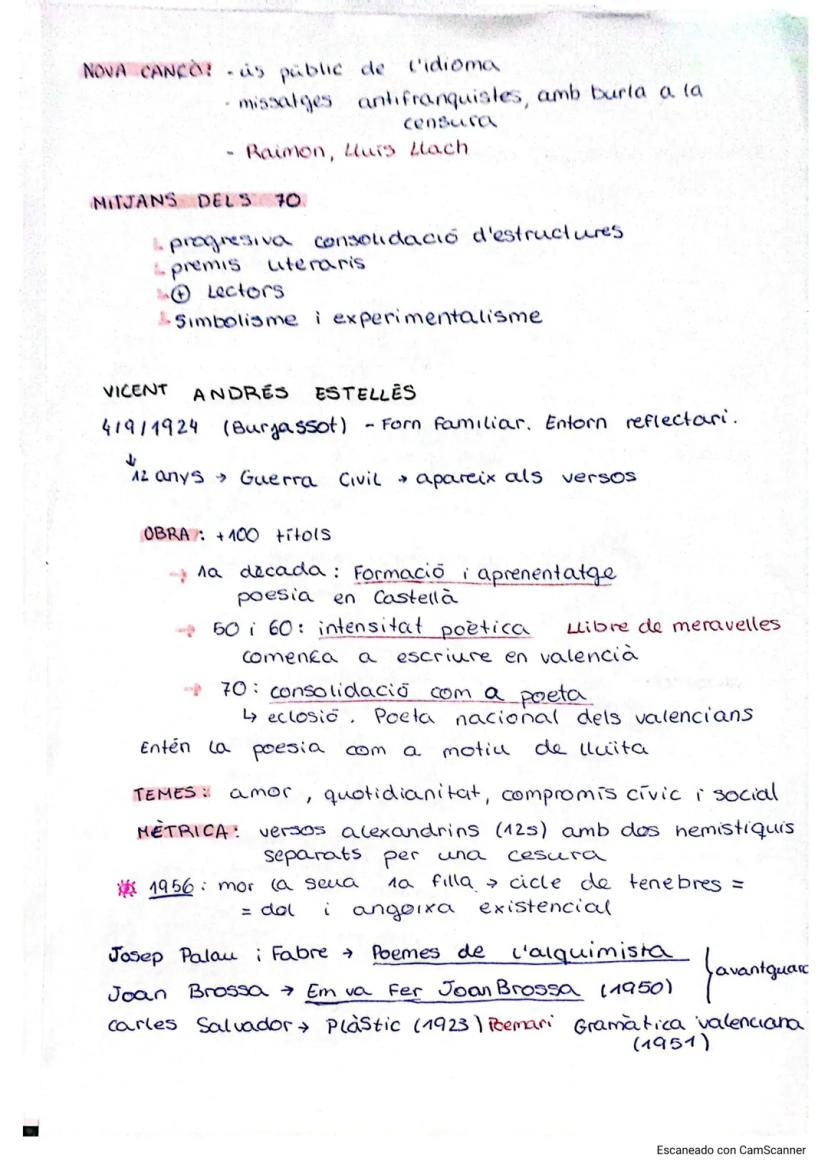 NOVA CANÇÓ: - ús públic de l'idioma
- missatges antifranquistes, amb burla a la
censura
- Raimon, Lluís Llach
MITJANS DELS 70
progresiva consolidació d'estructures
premis literaris
⊕ lectors
Simbolisme i experimentalisme
VICENT ANDRÉS ESTELLÉS
4/9/1924 (Burjassot) - Forn familiar. Entorn reflectari.
↓
12 anys → Guerra Civil → apareix als versos
OBRA: +100 títols
→ 1a dècada: Formació i aprenentatge
poesia en Castellà
→ 50 i 60: intensitat poètica Llibre de meravelles
comença a escriure en valencià
→ 70: consolidació com a poeta
↳ eclosió. Poeta nacional dels valencians
Entén la poesia com a motiu de lluita
TEMES: amor, quotidianitat, compromís cívic i social
MÈTRICA: versos alexandrins (12s) amb dos hemistiquis
separats per una cesura
1956: mor la seua 1a filla → cicle de tenebres =
= dol i angoixa existencial
Josep Palau i Fabre → Poemes de l'alquimista
avantguar
Joan Brossa → Em va fer Joan Brossa (1950)
Carles Salvador → Plàstic (1923) Poemari Gramàtica valenciana
(1951)
Escaneado con CamScanner